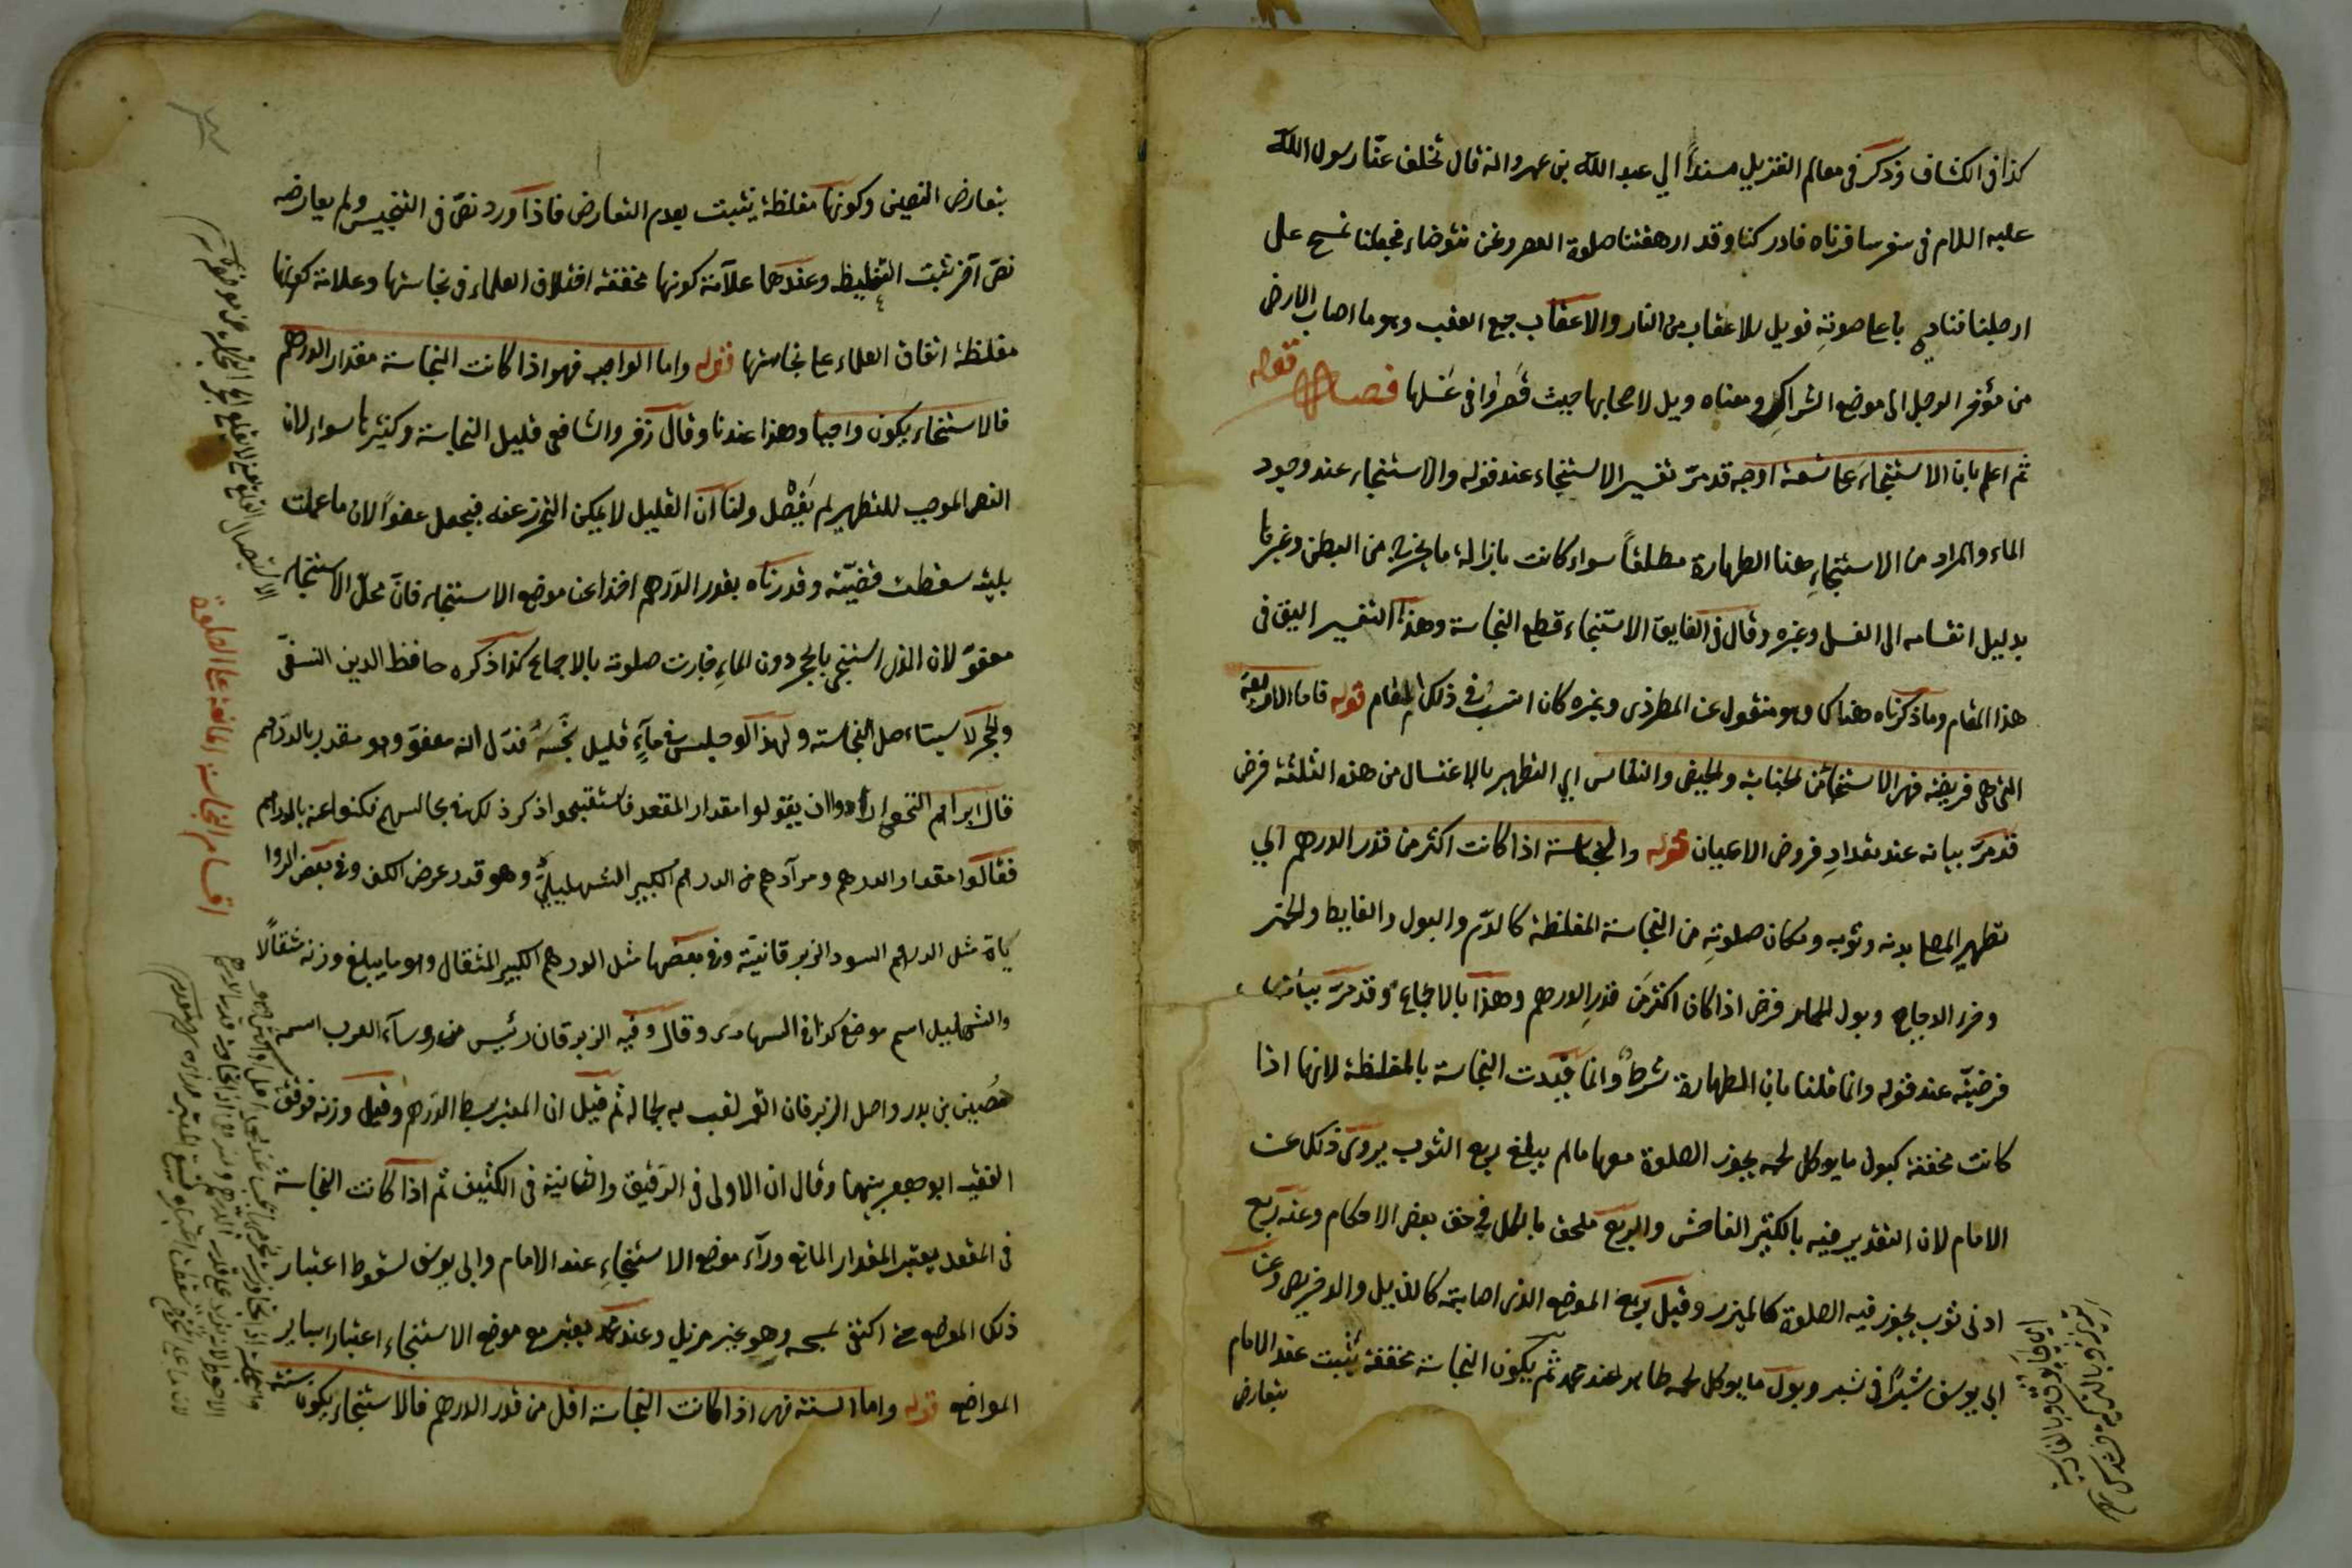 كذا فى الكشاف وذكر فى معالم التنزيل مسنداً الي عبد الله بن عمرو انه قال تخلف عنّا رسول الله
عليه السلام فى سفر سافرناه فادركنا وقد ارهقتنا صلوة العصر ونحن نتوضاء فجعلنا نمسح على
ارجلنا فنادى باعلا صوتِهِ فويل للاعقاب من النار والاعقاب جمع العقب وهو ما اصاب الارض
من مؤخر الرجل الى موضع الشراكِ ومعناه ويل لاصحابها حيث قَصّروا فى غَسلها فصل قوله
ثم اعلم بان الاستنجاءَ على تسعة اوجه قد مرّ تفسير الاستنجاء عند قوله والاستنجاء عند وجود
الماء والمراد من الاستنجاءِ هنا الطهارة مطلقاً سواء كانت بازالة ما يخرج من البطن وغيرها
بدليل انقسامه الى الغسل وغيره وقال فى الفايق الاستنجاء قطع النجاسة وهذا التفسير اليق فى
هذا المقام وما ذكرناه هناك وهو منقول عن المطرزى وغيره كان انسب فى ذلك المقام قوله فاما الاربعة
التى هى فريضة فهى الاستنجاء من الجنابة والحيض والنفاس اي التطهير بالاغتسال من هذه الثلثة فرض
قد مرّ بيانه عند تعدادِ فروض الاعيان قوله والنجاسة اذا كانت اكثر من قدر الدرهم اي
تطهير المصلى بدنه وثوبه ومكان صلوتِهِ من النجاسة المغلظة كالدّم والبول والغايط والخمر
وخرء الدجاج وبول الحمار فرض اذا كان اكثر مَن قدرِ الدرهم وهذا بالاجماع وقد مرّ بيان
فرضيّة عند قوله وانما قلنا بان الطهارة شرطٌ وانما قيدت النجاسة بالمغلظة لانها اذا
كانت مخففة كبول ما يوكل لحمه يجوز الصلوة معها ما لم يبلغ ربع الثوب يروى ذلك عن
الامام لان التقدير فيه بالكثير الفاحش والربع ملحق بالكل في حق بعض الاحكام وعنه ربع
ادنى ثوب يجوز فيه الصلوة كالميزر وقيل ربع الموضع الذى اصابته كالذيل والدخريص وعن
ابى يوسف شبراً فى شبر وبول ما يوكل لحمه طاهر عند محمد ثم يكون النجاسة مخففة يثبت عند الامام
بتعارض
بتعارض النصين وكونها مغلظة يثبت بعدم التعارض فاذا ورد نصّ فى التنجيس ولم يعارضه
نصّ آخر ثبت التغليظ وعندهما علامة كونها مخففة اختلاف العلماء فى نجاستها وعلامة كونها
مغلظة اتفاق العلماء على نجاستها قوله واما الواجب فهو اذا كانت النجاسة مقدار الدرهم
فالاستنجاء يكون واجبا وهذا عندنا وقال زفر والشافعى قليل النجاسة وكثيرها سواء لان
النص الموجب للتطهير لم يَفصْل ولنا ان القليل لا يمكن التحرز عنه فيجعل عفواً لان ما عمت
بليته سقطت قضيّته وقدرناه بقدر الدَرهم اخذا عن موضع الاستنجاء فان محلّ الاستنجاء
معفوّ لان الذى استنجى بالحجر دون الماءِ جازت صلوته بالاجماع كذا ذكره حافظ الدين النسفىّ
والحجر لا يستاءصل النجاسة ولهذا لو جلس فى مآءٍ قليل نَجّسهُ فدّل انه معفوّ وهو مقدر بالدرهم
قال ابراهيم النخعى ارادوا ان يقولوا مقدار المقعد فاستقبحوا ذكر ذلك فى مجالسهم فكنوا عنه بالدرهم
فقالوا مقدار الدرهم ومرآدهم من الدرهم الكبير الشهليلىّ وهو قدر عرض الكف وفى بعض الروا
ياة مثل الدرهم السود الزبرقانيّة وفى بعضها مثل الدرهم الكبير المثقال وهو ما يبلغ وزنه مثقالاً
والشهليل اسم موضع كذا فى وقال وفيه الزبرقان رئيس من روسآء العرب اسمه
حُصين بن بدر واصل الزبرقان القمر لقب به لجماله ثم قيل ان المعتبر بسط الدرهم وقيل وزنه فوفق
الفقيه ابو جعفر بينهما وقال ان الاولى فى الرقيق والثانية فى الكثيف ثم اذا كانت النجاسة
فى المقعد يعتبر المقدار المانع ورآء موضع الاستنجاءِ عند الامام وابى يوسف لسقوط اعتبار
ذلك الموضع حتى اكتفى بمسحه وهو غير مزيل وعند محمد يعتبر مع موضع الاستنجاء اعتبارا بساير
المواضع قوله واما السنة فهى اذا كانت النجاسة اقل من قدر الدرهم فالاستنجاء يكون سنة
اقسام النجاست المانعة على الصلوة